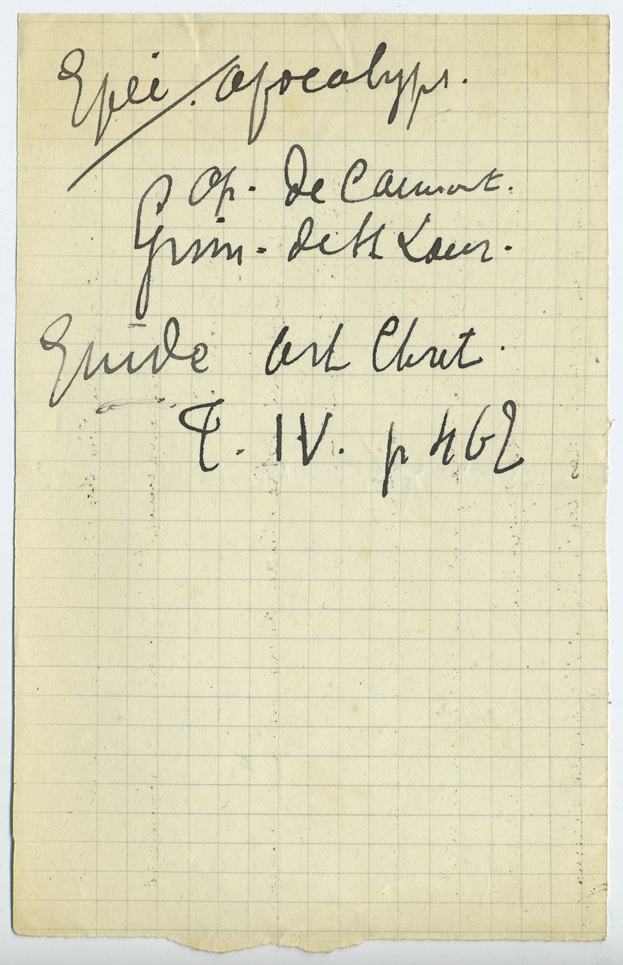 Epée / apocalyps.
Op. de Caumont.
Grim. de St Laur.
Guide art Chret.
T. IV. p 462